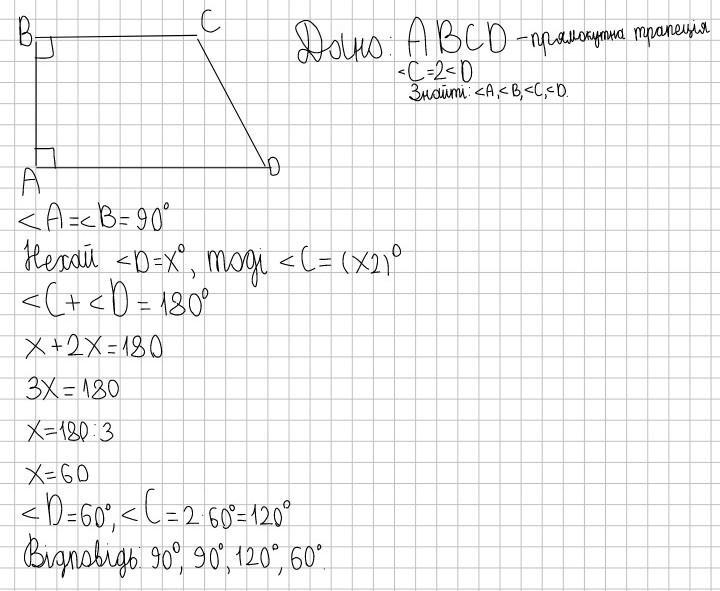 B
C
A
D
Дано: ABCD – прямокутна трапеція
<C=2<D
Знайті: <A,<B,<C,<D.
<A=<B=90°
Нехай <D=x°, тоді <C=(x2)°
<C+<D=180°
x+2x=180
3x=180
x=180:3
x=60
<D=60°, <C=2·60°=120°
Відповідь: 90°, 90°, 120°, 60°.